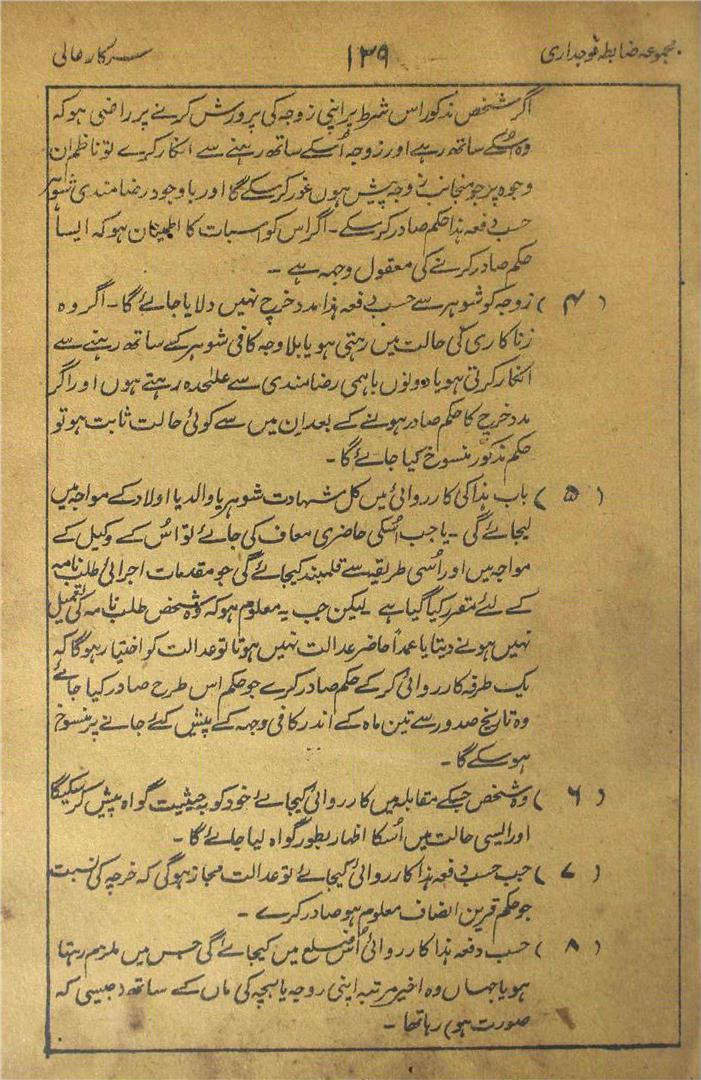 مجموعہ ضابطہ فوجداری ۱۳۹ سرکار عالی
اگر شخص مذکور اس شرط پر اپنی زوجہ کی پرورش کرنے پر راضی ہو کہ
وہ اسکے ساتھ رہے اور زوجہ اُسکے ساتھ رہنے سے انکار کرے تو ناظم ان
وجوہ پر جو منجانب زوجہ پیش ہوں غور کر سکے گا اور باوجود رضامندی شوہر
حسب دفعہ ہذا حکم صادر کر سکے۔ اگر اس کو اسبات کا اطمینان ہو کہ ایسا
حکم صادر کرنے کی معقول وجہہ ہے ۔
( ۴ ) زوجہ کو شوہر سے حسب دفعہ ہذا مدد خرچ نہیں دلایا جائے گا۔ اگر وہ
زنا کاری کی حالت میں رہتی ہو یا بلا وجہ کافی شوہر کے ساتھ رہنے سے
انکار کرتی ہو یا دونوں باہمی رضامندی سے علٰحدہ رہتے ہوں اور اگر
مدد خرچ کا حکم صادر ہونے کے بعد ان میں سے کوئی حالت ثابت ہو تو
حکم مذکور منسوخ کیا جائے گا ۔
( ۵ ) باب ہذا کی کارروائی میں کل شہادت شوہر یا والد یا اولاد کے مواجہ میں
لیجائے گی ۔ یا جب اُسکی حاضری معاف کی جائے تو اُس کے وکیل کے
مواجہ میں اور اُسی طریقہ سے قلمبند کیجائے گی جو مقدمات اجرائی طلب نامہ
کے لئے مقرر کیا گیا ہے لیکن جب یہ معلوم ہو کہ وہ شخص طلب نامہ کی تعمیل
نہیں ہونے دیتا یا عمداً حاضر عدالت نہیں ہوتا تو عدالت کو اختیار ہو گا کہ
یک طرفہ کارروائی کر کے حکم صادر کرے جو حکم اس طرح صادر کیا جائے
وہ تاریخ صدور سے تین ماہ کے اندر کافی وجہہ کے پیش کئے جانے پر منسوخ
ہو سکے گا ۔
( ۶ ) وہ شخص جسکے مقابلہ میں کارروائی کیجائے خود کو بہ حیثیت گواہ پیش کر سکیگا
اور ایسی حالت میں اُسکا اظہار بطور گواہ لیا جائے گا ۔
( ۷ ) جب حسب دفعہ ہذا کارروائی کیجائے تو عدالت مجاز ہو گی کہ خرچہ کی نسبت
جو حکم قرین انصاف معلوم ہو صادر کرے ۔
( ۸ ) حسب دفعہ ہذا کارروائی اُس ضلع میں کیجائے گی جس میں ملزم رہتا
ہو یا جہاں وہ اخیر مرتبہ اپنی زوجہ یا بچہ کی ماں کے ساتھ (جیسی کہ
صورت ہو) رہا تھا ۔